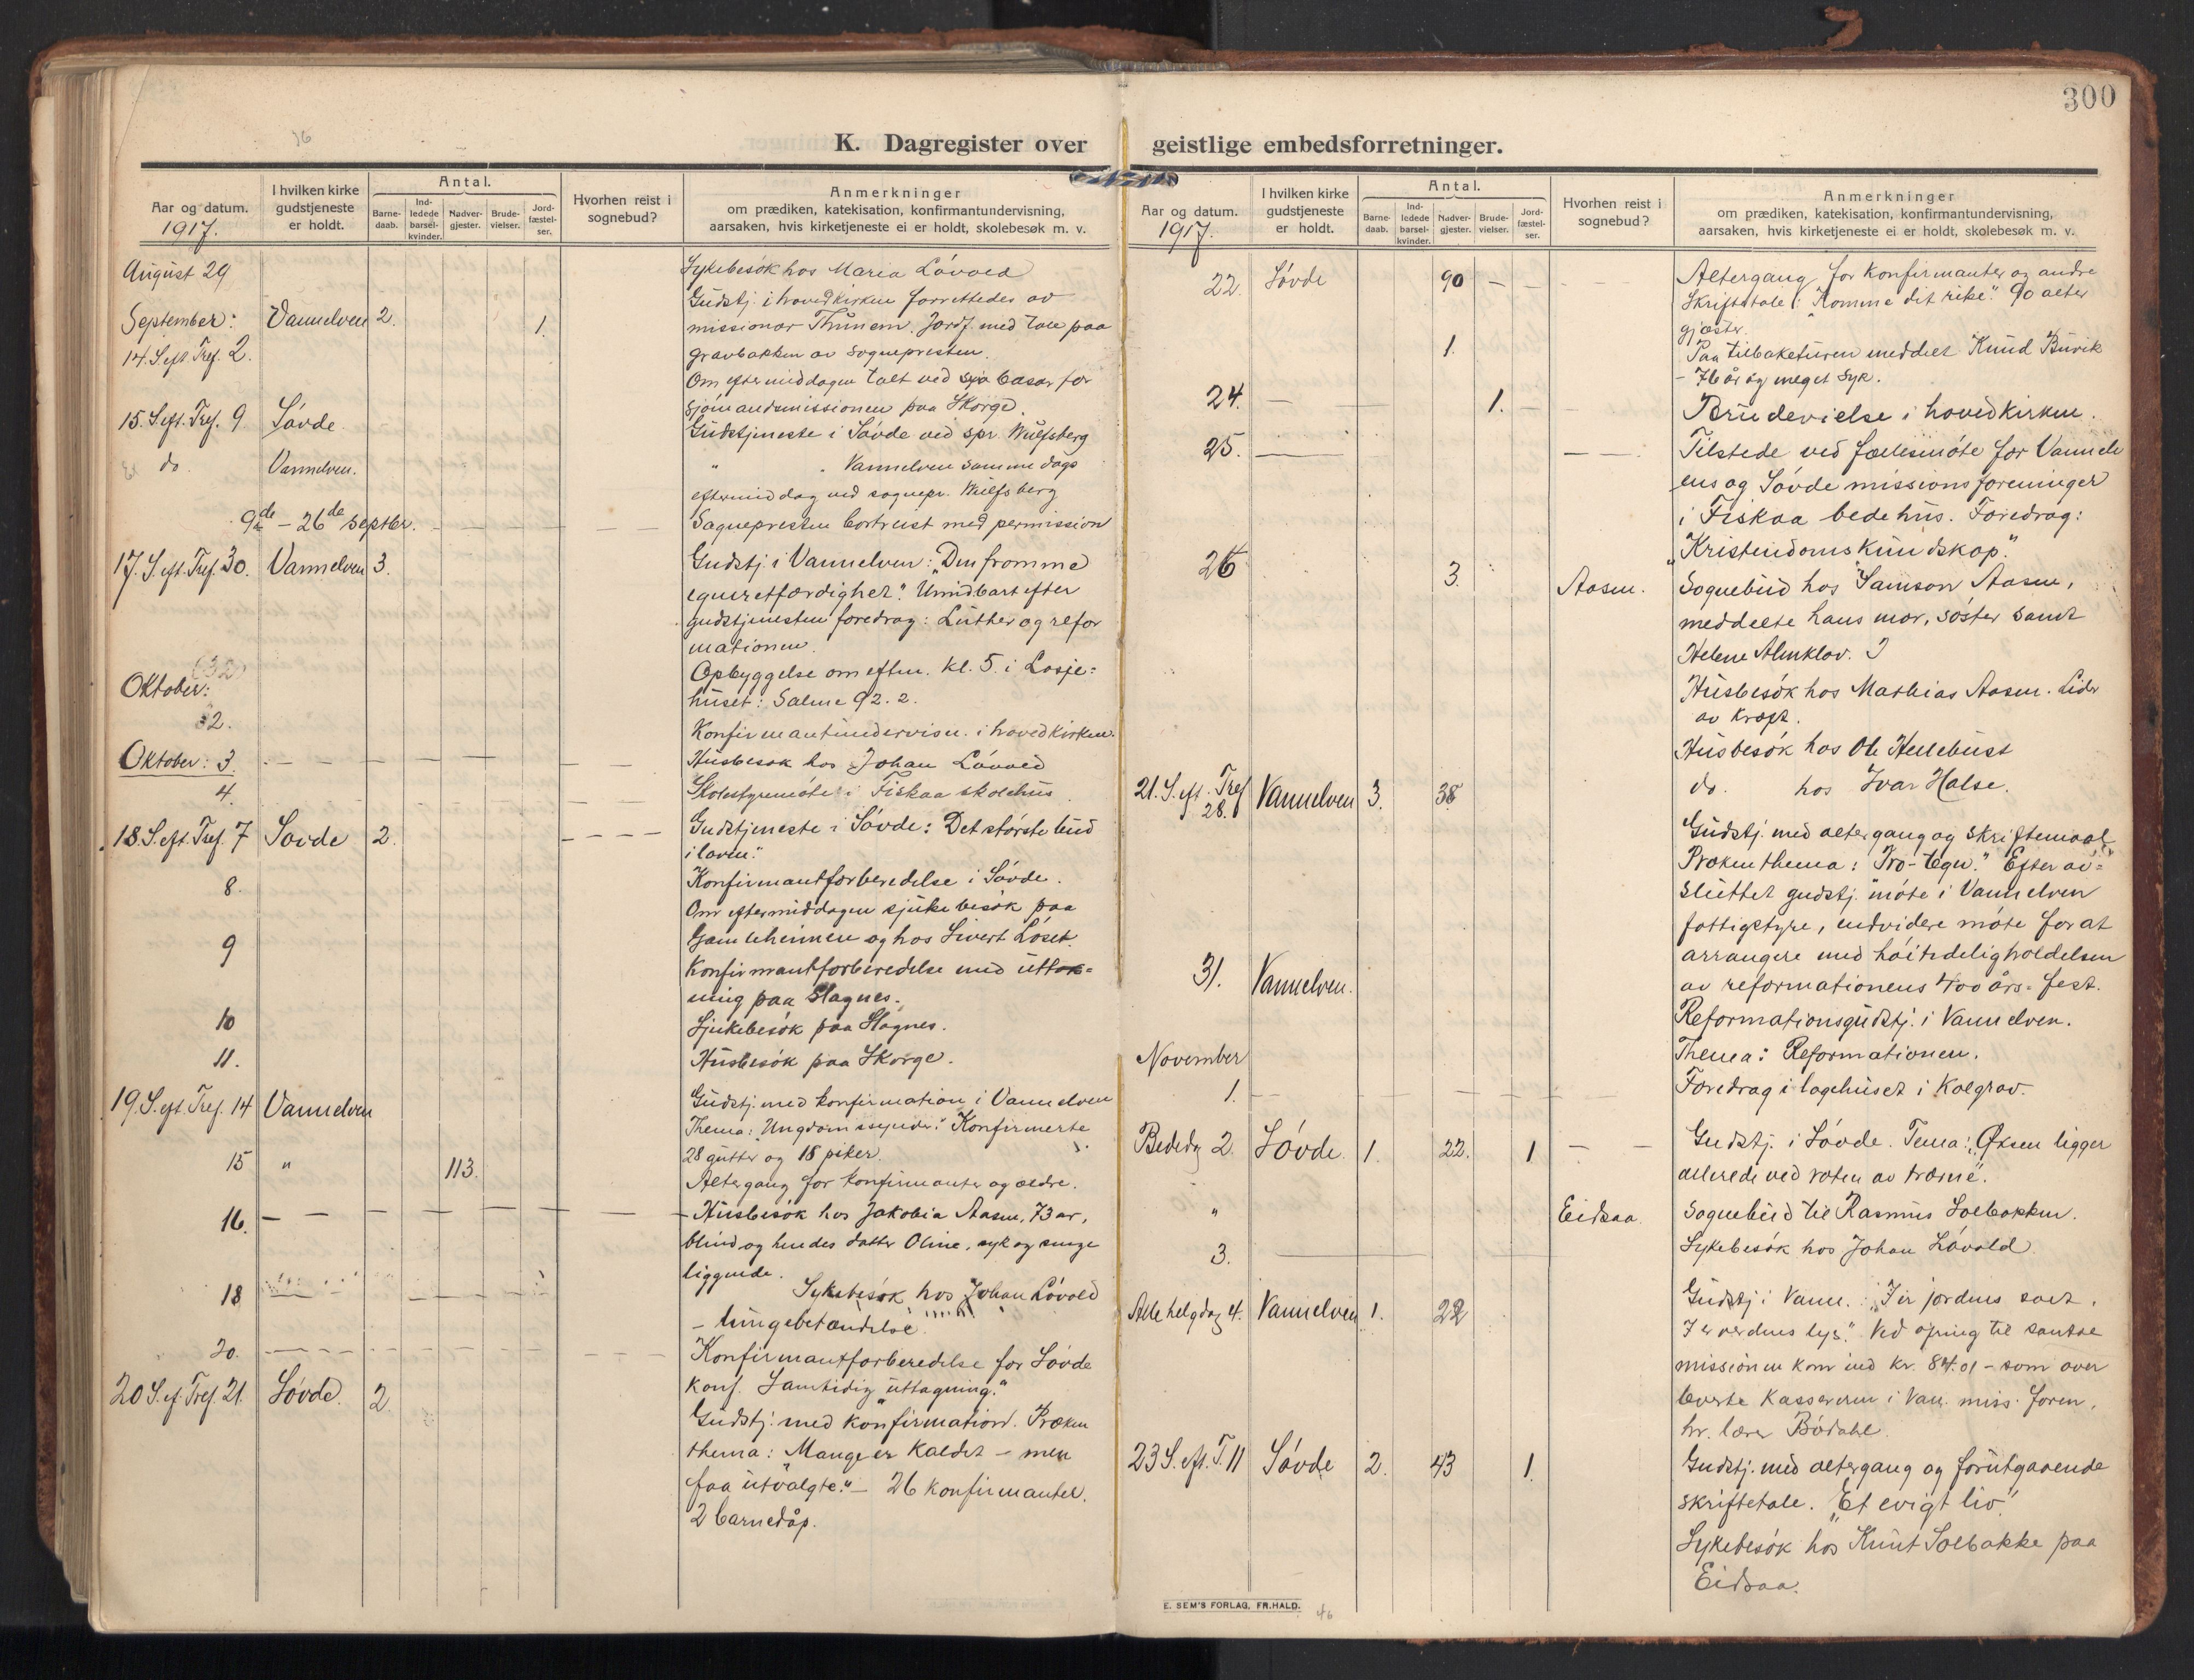 300
K. Dagregister over geistlige embedsforretninger.
Aar og datum.
1917.
I hvilken kirke gudstjeneste er holdt.
Antal.
Barne-daab.
Ind-ledede barsel-kvinder.
Nadver-gjester.
Brude-vielser.
Jord-fæstel-ser.
Hvorhen reist i sognebud?
Anmerkninger
om prædiken, katekisation, konfirmantundervisning,
aarsaken, hvis kirketjeneste ei er holdt, skolebesøk m. v.
August 29
Sykebesök hos Maria Lövold
Gudstj. i hovedkirken forrettedes av
September: Vannelven 2. 1. missionær Thunem. Jordf. med tale paa
14. S. eft. Tref. 2. gravbakken av sognepresten.
Om eftermiddagen talt ved basar for
sjömandsmissionen paa Skorge.
15. S. eft. Tref. 9 Sövde Gudstjeneste i Sövde ved spr Wulfsberg
do. Vannelven. " " Vannelven samme dags
eftermiddag ved sognepr. Wulfsberg
9de – 26de Septbr. Sognepresten bortreist med permission
17. S. eft. Tref. 30. Vannelven 3. Gudstj. i Vannelven: Den fromme
egenretfærdighet." Umidbart efter
gudstjenesten foredrag: Luther og refor
mationen.
Opbyggelse om eftm. kl. 5. i Losje=
huset: Salme 92. 2.
Oktober: (32)
2. Konfirmantundervisn. i hovedkirken.
Oktober: 3. Husbesök hos Johan Lövold
4. Skolestyremöte i Fiskaa skolehus
18. S. eft. Tref. 7 Sövde 2. Gudstjeneste i Sövde: Det störste bud
i loven."
8. Konfirmantforberedelse i Sövde.
Om eftermiddagen sjukebesök paa
Gamleheimen og hos Sivert Löset.
9 Konfirmantforberedelse med uttak=
ning paa Slagnes.
10 Sjukebesök paa Slagnes.
11. Husbesök paa Skorge.
19. S. eft. Tref. 14 Vannelven Gudstj. med konfirmation i Vannelven
Thema: "Ungdomssynder." Konfirmerte
28 gutter og 18 piker.
15 " 113. Altergang for konfirmanter og ældre.
16. Husbesök hos Jakobia Aasen, 73 ar,
blind og hendes datter Oline, syk og senge
liggende.
18 Sykebesök hos Johan Lövold
– lungebetændelse.
20. Konfirmantforberedelse for Sövde
konf. Samtidig "uttagning."
20 S. ef. Tref. 21. Sövde. 2. Gudstj. med konfirmation. Præken
thema: Mange er kaldet – men
faa utvalgte." – 26 konfirmanter.
2 barnedåp.
Aar og datum.
1917.
I hvilken kirke gudstjeneste er holdt.
Antal.
Barne-daab.
Ind-ledede barsel-kvinder.
Nadver-gjester.
Brude-vielser.
Jord-fæstel-ser.
Hvorhen reist i sognebud?
Anmerkninger
om prædiken, katekisation, konfirmantundervisning,
aarsaken, hvis kirketjeneste ei er holdt, skolebesøk m. v.
22. Sövde 90 Altergang for konfirmanter og andre
Skriftetale: "Komme dit rike." 90 alter
gjæster.
1. Paa tilbaketuren meddelt Knud Burik
– 76 år og meget syk.
24. 1. Brudevielse i hovedkirken.
25. Tilstede ved fællesmöte for Vannelv
ens og Sövde missionsforeninger
i Fiskaa bedehus. Foredrag:
"Kristendomskundskap."
26 3. Aasen. Sognebud hos Samson Aasen,
meddelte hans mor, söster samt
Helene Almklov.
Husbesök hos Mathias Aasen. Lider
av kræft.
Husbesök hos Ole Hellebust
do. hos Ivar Halse.
21. S. eft. Tref 28. Vannelven 3. 38 Gudstj. med altergang og skriftemaal
Præken thema: Tro – tegn." Efter av=
sluttet gudstj. möte i Vannelven
fattigstyre, endvidere möte for at
arrangere med höitideligholdelsen
av reformationens 400 års=fest.
31. Vannelven. Reformationsgudstj. i Vannelven.
Thema: Reformationen.
November
1. Foredrag i lagehuset i Kolgrov.
Bededg 2. Sövde 1. 22. 1 Gudstj. i Sövde. Tema: "Öksen ligger
allerede ved roten av træerne".
" Eidsaa. Sognebud til Rasmus Solbakken.
3. Sykebesök hos Johan Lövold.
Alle helgdag 4. Vannelven 1. 22 Gudstj i Vann.: "I er jordens salt.
I er verdens lys." Ved ofring til santal
missionen kom ind kr. 84.01 – som over
leverte kassereren i Van. miss. foren.
hr. lærer Bödahl.
23 S. eft. T. 11 Sövde 2. 43 1. Gudstj. med altergang og forutgaaende
skriftetale. "Et evigt liv"
Sykebesök hos Knut Solbakke paa
Eidsaa.
E. SEM'S FORLAG, FR.HALD.